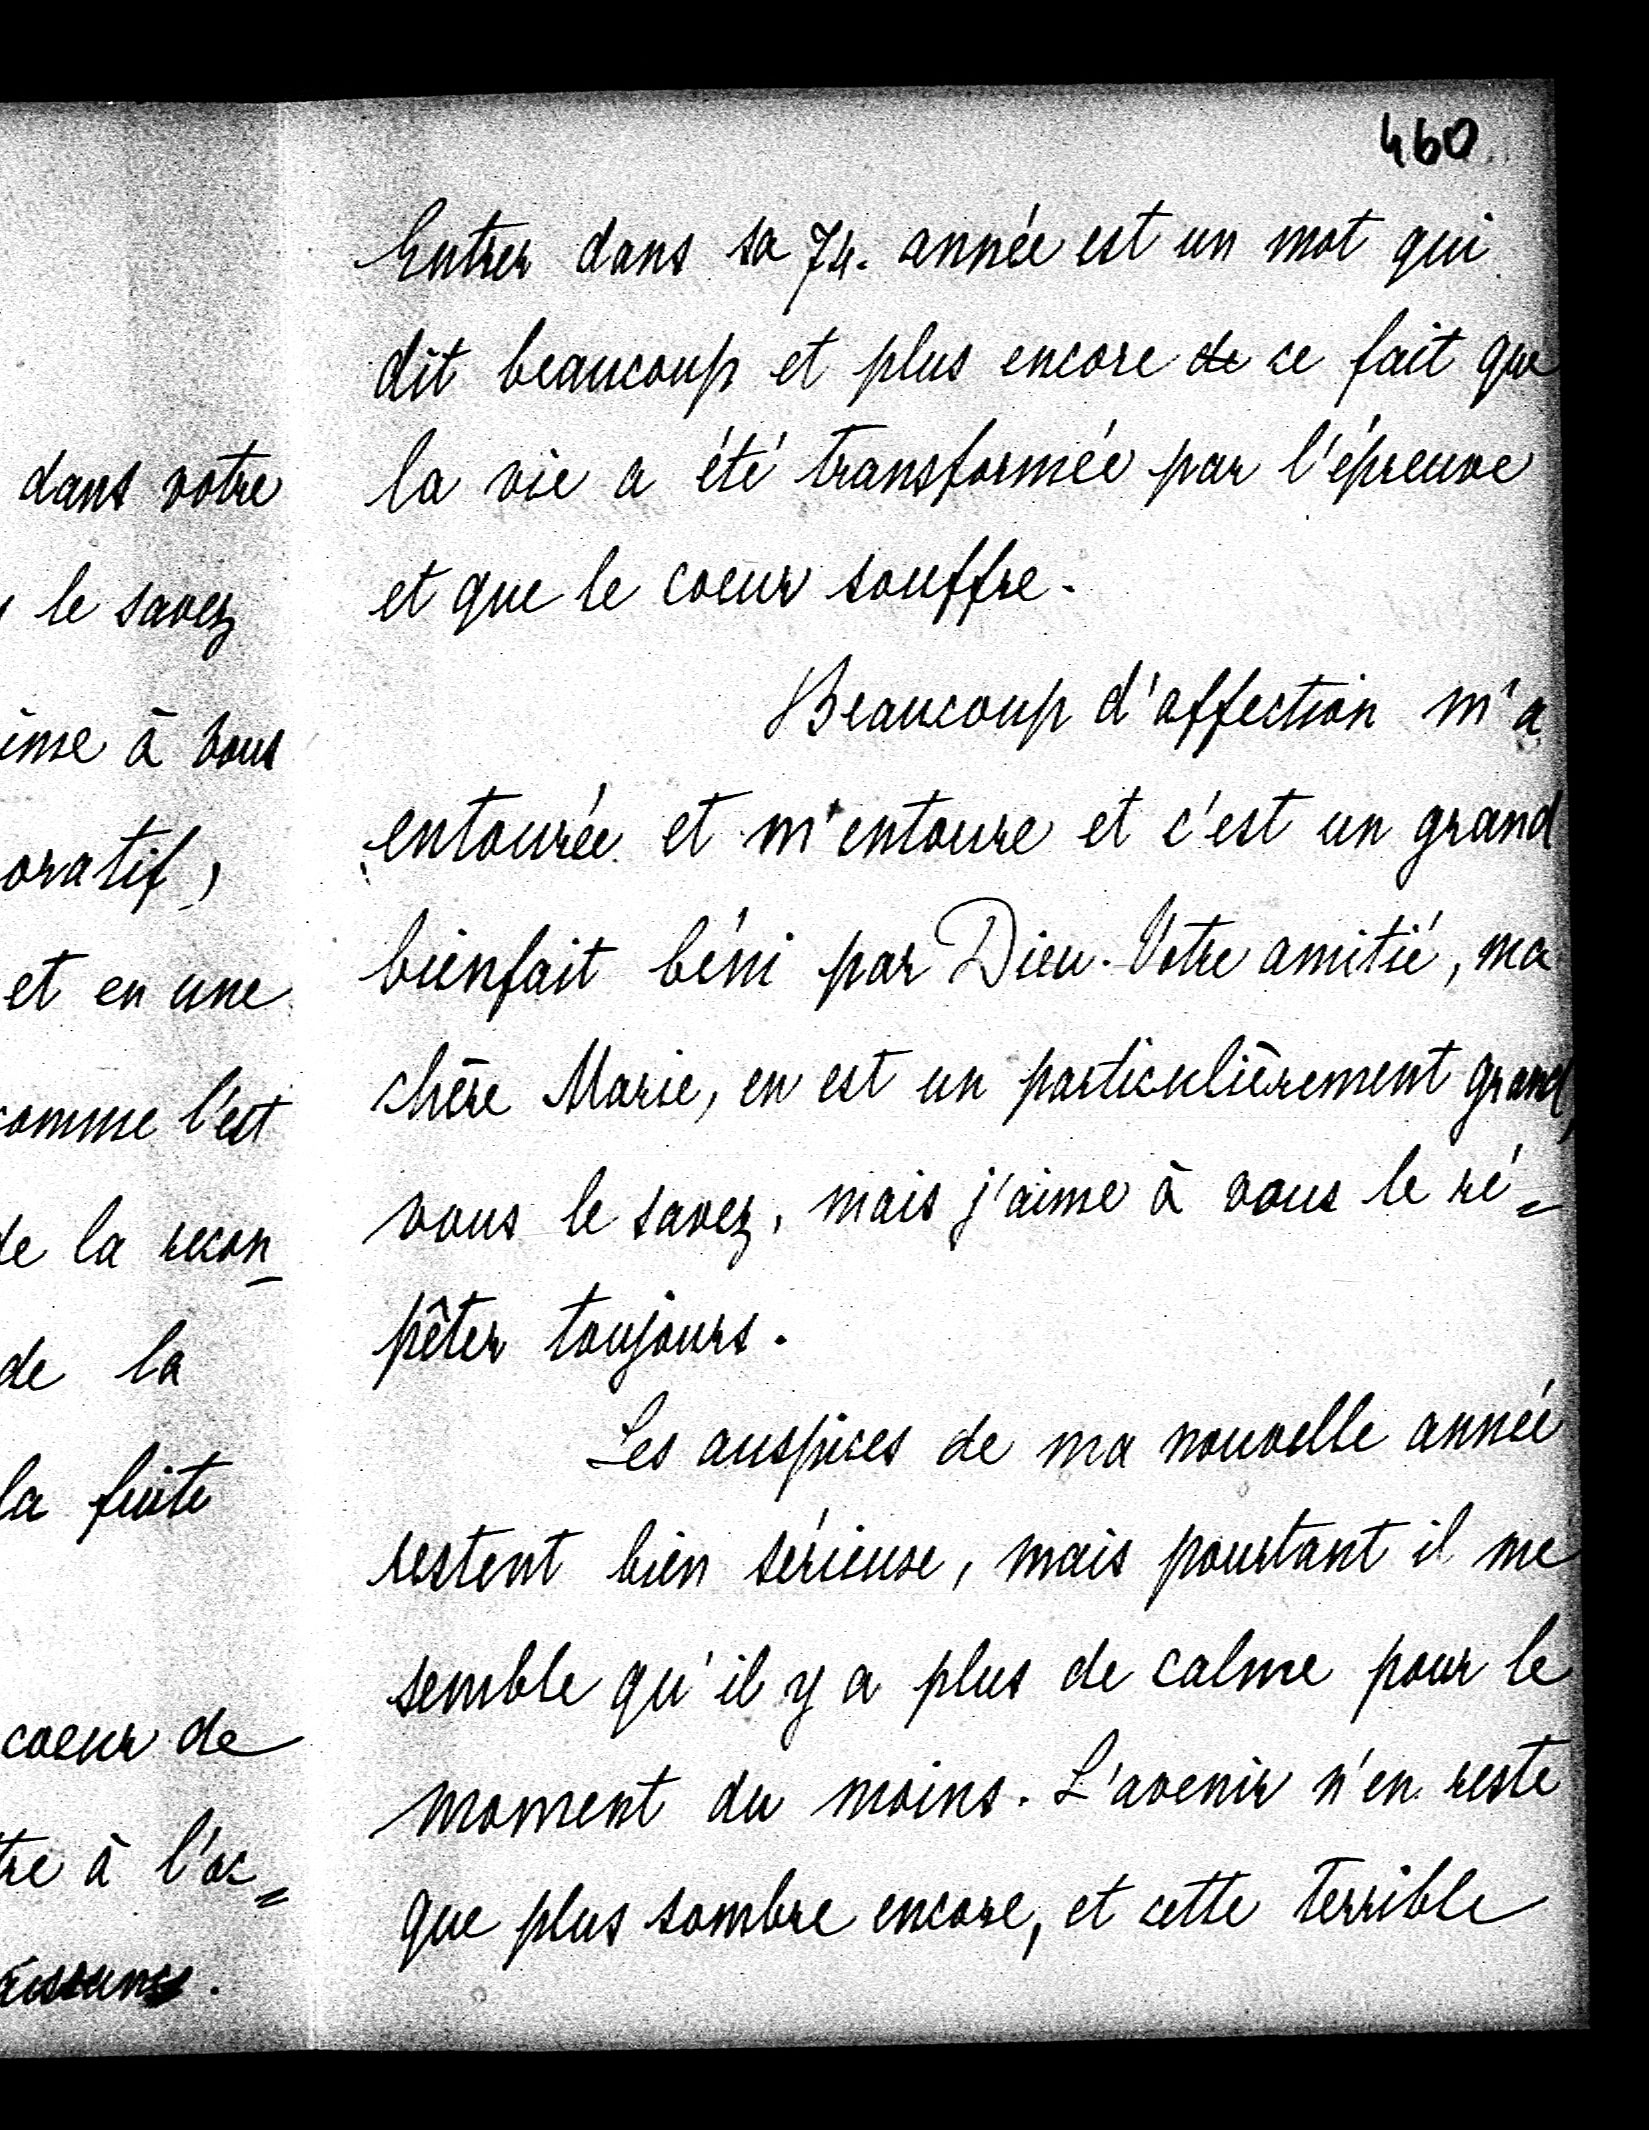 dans votre
le savez
à vous
oratif,
et en une
comme l'est
de la recon-
de la
la fuite
coeur de
tre à l'oc=
460
Entrer dans sa 74. année est un mot qui
dit beaucoup et plus encore de ce fait que
la vie a été transformée par l'épreuve
et que le coeur souffre.
Beaucoup d'affection m'a
entourée et m'entoure et c'est un grand
bienfait béni par Dieu. Votre amitié, ma
chère Marie, en est un particulièrement grand,
vous le savez, mais j'aime à vous le ré=
pêter toujours.
Les auspices de ma nouvelle année
restent bien sérieuse, mais pourtant il me
semble qu'il y a plus de calme pour le
moment du moins. L'avenir n'en reste
que plus sombre encore, et cette terrible